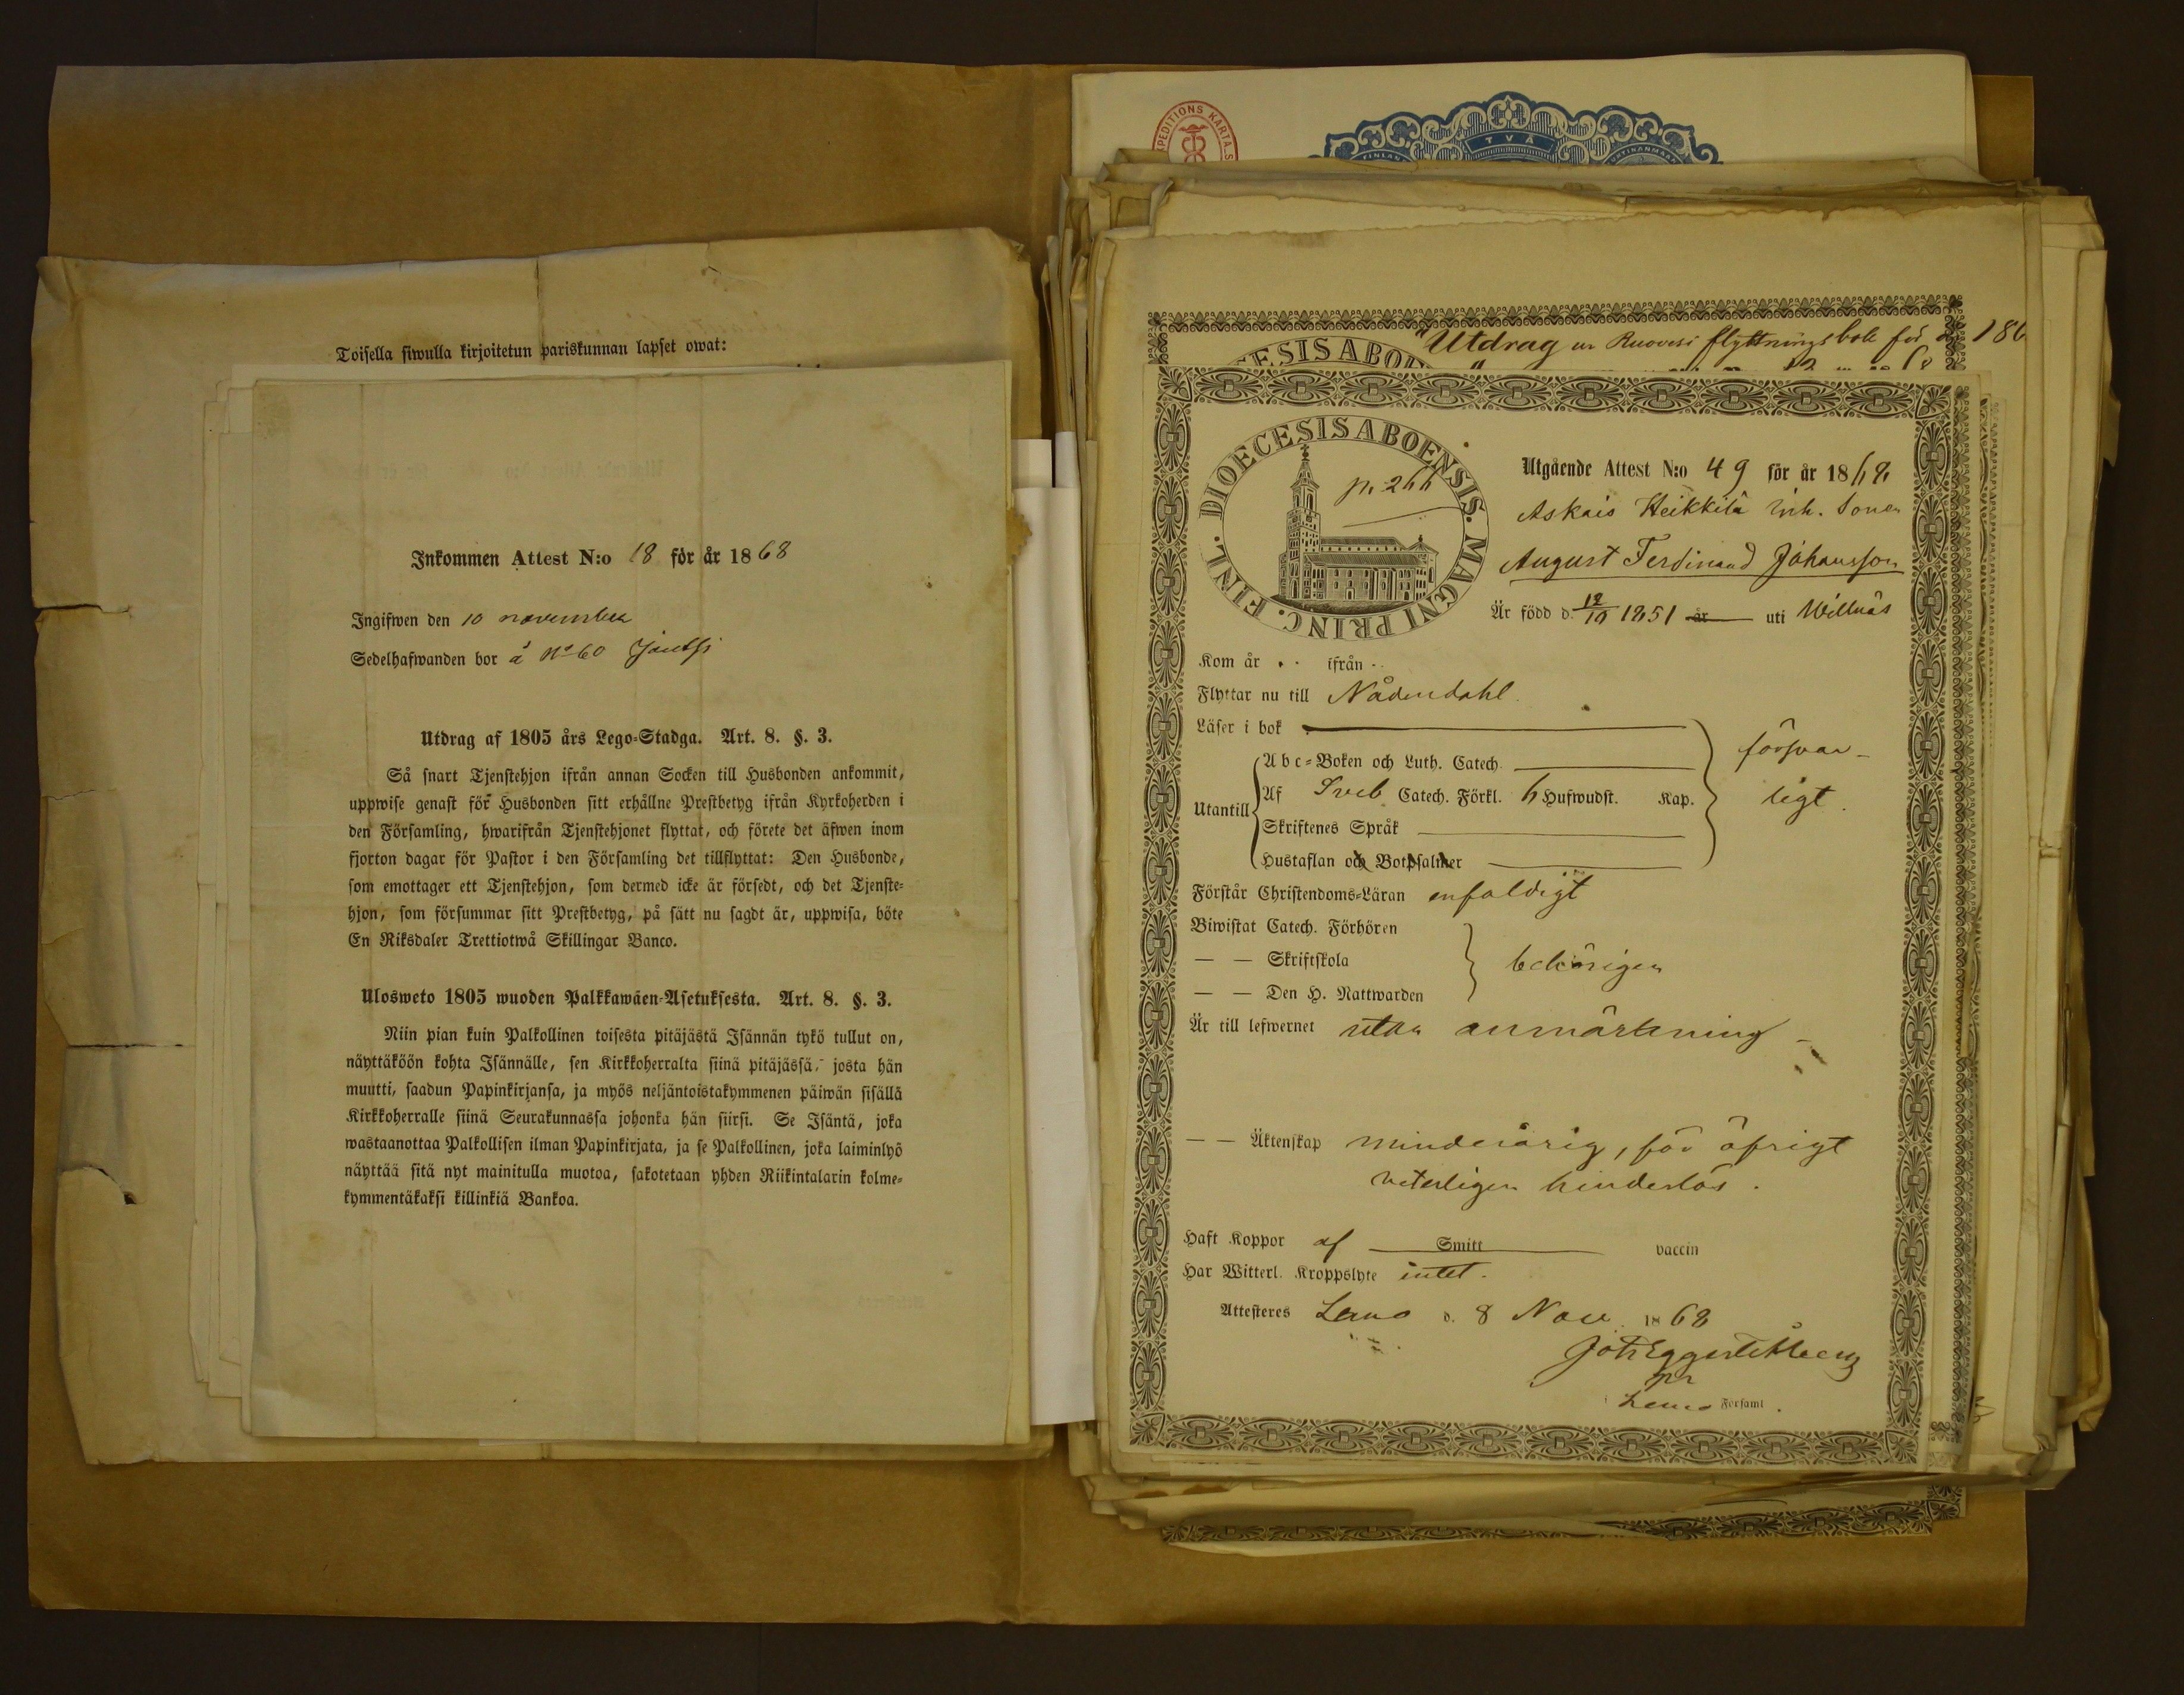 Toisella siwulla kirjoitetun pariskunnan lapset owat:
Inkommen Attest N:o 18 för år 1868
Ingifwen den 10 november
Sedelhafwanden bor å No 60
Utdrag af 1805 års Lego-Stadga. Art. 8. §. 3.
Så snart Tjenstehjon ifrån annan Socken till Husbonden ankommit,
uppwise genast för Husbonden sitt erhållne Prestbetyg ifrån Kyrkoherden i
den Församling, hwarifrån Tjenstehjonet flyttat, och förete det äfwen inom
fjorton dagar för Pastor i den Församling det tillflyttat: Den Husbonde,
som emottager ett Tjenstehjon, som dermed icke är försedt, och det Tjenste-
hjon, som försummar sitt Prestbetyg, på sätt nu sagdt är, uppwisa, böte
En Riksdaler Trettiotwå Skillingar Banco.
Ulosweto 1805 wuoden Palkkawäen-Asetuksesta. Art. 8. §. 3.
Niin pian kuin Palkollinen toisesta pitäjästä Isännän tykö tullut on,
näyttäköön kohta Isännälle, sen Kirkkoherralta siinä pitäjässä, josta hän
muutti, saadun Papinkirjansa, ja myös neljäntoistakymmenen päiwän sisällä
Kirkkoherralle siinä Seurakunnassa johonka hän siirsi. Se Isäntä, joka
wastaanottaa Palkollisen ilman Papinkirjata, ja se Palkollinen, joka laiminlyö
näyttää sitä nyt mainitulla muotoa, sakotetaan yhden Riikintalarin kolme-
kymmentäkaksi killinkiä Bankoa.
PEDITIONS KARTA.S
TVÅ
FINLAN
Utdrag ur Ruovesi flyttningsbok för år 186
ESIS ABO
DIOECESIS ABOENSIS. MAGNI PRINC. FINL.
p. 266
Utgående Attest N:o 49 för år 1868
Askais Heikkilä inh. Sonen
August Ferdinand Johansson
Är född d. 12/10 1851 år uti Willnäs
Kom år ifrån
Flyttar nu till Nådendahl.
Läser i bok
försvar-
ligt.
Utantill
Abc-Boken och Luth. Catech.
Af Sveb. Catech. Förkl. 6 Hufwudst. Kap.
Skriftenes Språk
Hustaflan och Botpsalmer
Förstår Christendoms-Läran enfaldigt
Biwistat Catech. Förhören
— — Skriftskola behörigen
— — Den H. Nattwarden
Är till lefwernet utan anmärkning
— — Äktenskap minderårig, för öfrigt
veterligen hinderlös.
Haft Koppor af Smitt vaccin
Har Witterl. Kroppslyte intet.
Attesteres Lemo d. 8 Nov. 1868
Lemo Församl.